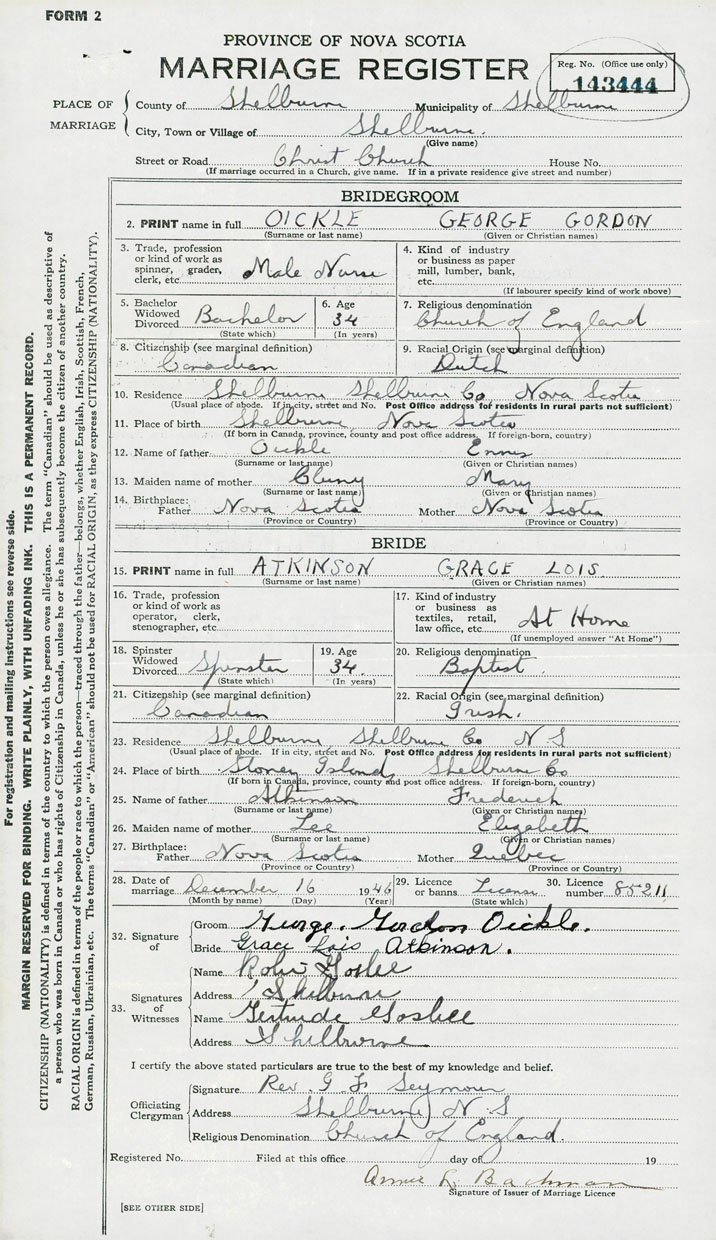 FORM 2
PROVINCE OF NOVA SCOTIA
MARRIAGE REGISTER
Reg. No. (Office use only)
143444
PLACE OF MARRIAGE
County of Shelburne Municipality of Shelburne
City, Town or Village of Shelburne.
(Give name)
Street or Road Christ Church House No.
(If marriage occurred in a Church, give name. If in a private residence give street and number)
BRIDEGROOM
2. PRINT name in full OICKLE GEORGE GORDON
(Surname or last name) (Given or Christian names)
3. Trade, profession or kind of work as spinner, grader, clerk, etc. Male Nurse
4. Kind of industry or business as paper mill, lumber, bank, etc.
(If labourer specify kind of work above)
5. Bachelor Widowed Divorced Bachelor
(State which)
6. Age 34
(In years)
7. Religious denomination
Church of England
8. Citizenship (see marginal definition)
Canadian
9. Racial Origin (see marginal definition)
Dutch
10. Residence Shelburne Shelburne Co Nova Scotia
(Usual place of abode. If in city, street and No. Post Office address for residents in rural parts not sufficient)
11. Place of birth Shelburne Nova Scotia
(If born in Canada, province, county and post office address. If foreign-born, country)
12. Name of father Oickle Ennis
(Surname or last name) (Given or Christian names)
13. Maiden name of mother Mary
(Surname or last name) (Given or Christian names)
14. Birthplace:
Father Nova Scotia Mother Nova Scotia
(Province or Country) (Province or Country)
BRIDE
15. PRINT name in full ATKINSON GRACE LOIS.
(Surname or last name) (Given or Christian names)
16. Trade, profession or kind of work as operator, clerk, stenographer, etc.
17. Kind of industry or business as textiles, retail, law office, etc. At Home
(If unemployed answer "At Home")
18. Spinster Widowed Divorced Spinster
(State which)
19. Age 34.
(In years)
20. Religious denomination
Baptist
21. Citizenship (see marginal definition)
Canadian
22. Racial Origin (see marginal definition)
Irish.
23. Residence Shelburne Shelburne Co N S
(Usual place of abode. If in city, street and No. Post Office address for residents in rural parts not sufficient)
24. Place of birth Stoney Island, Shelburne Co
(If born in Canada, province, county and post office address. If foreign-born, country)
25. Name of father Atkinson Frederick
(Surname or last name) (Given or Christian names)
26. Maiden name of mother Lee Elizabeth
(Surname or last name) (Given or Christian names)
27. Birthplace:
Father Nova Scotia Mother Quebec
(Province or Country) (Province or Country)
28. Date of marriage December 16 1946
(Month by name) (Day) (Year)
29. Licence or banns License
(State which)
30. Licence number 85211
32. Signature of
Groom George. Gordon Oickle.
Bride Grace Lois Atkinson.
33. Signatures of Witnesses
Name
Address Shelburne
Name Gertrude
Address Shelburne
I certify the above stated particulars are true to the best of my knowledge and belief.
Officiating Clergyman
Signature Rev. G F Seymour
Address Shelburne N. S
Religious Denomination Church of England.
Registered No. Filed at this office day of 19
Annie L. Bachman
Signature of Issuer of Marriage Licence
[SEE OTHER SIDE]
For registration and mailing instructions see reverse side.
MARGIN RESERVED FOR BINDING. WRITE PLAINLY, WITH UNFADING INK. THIS IS A PERMANENT RECORD.
CITIZENSHIP (NATIONALITY) is defined in terms of the country to which the person owes allegiance. The term "Canadian" should be used as descriptive of
a person who was born in Canada or who has rights of Citizenship in Canada, unless he or she has subsequently become the citizen of another country.
RACIAL ORIGIN is defined in terms of the people or race to which the person—traced through the father—belongs, whether English, Irish, Scottish, French,
German, Russian, Ukrainian, etc. The terms "Canadian" or "American" should not be used for RACIAL ORIGIN, as they express CITIZENSHIP (NATIONALITY).